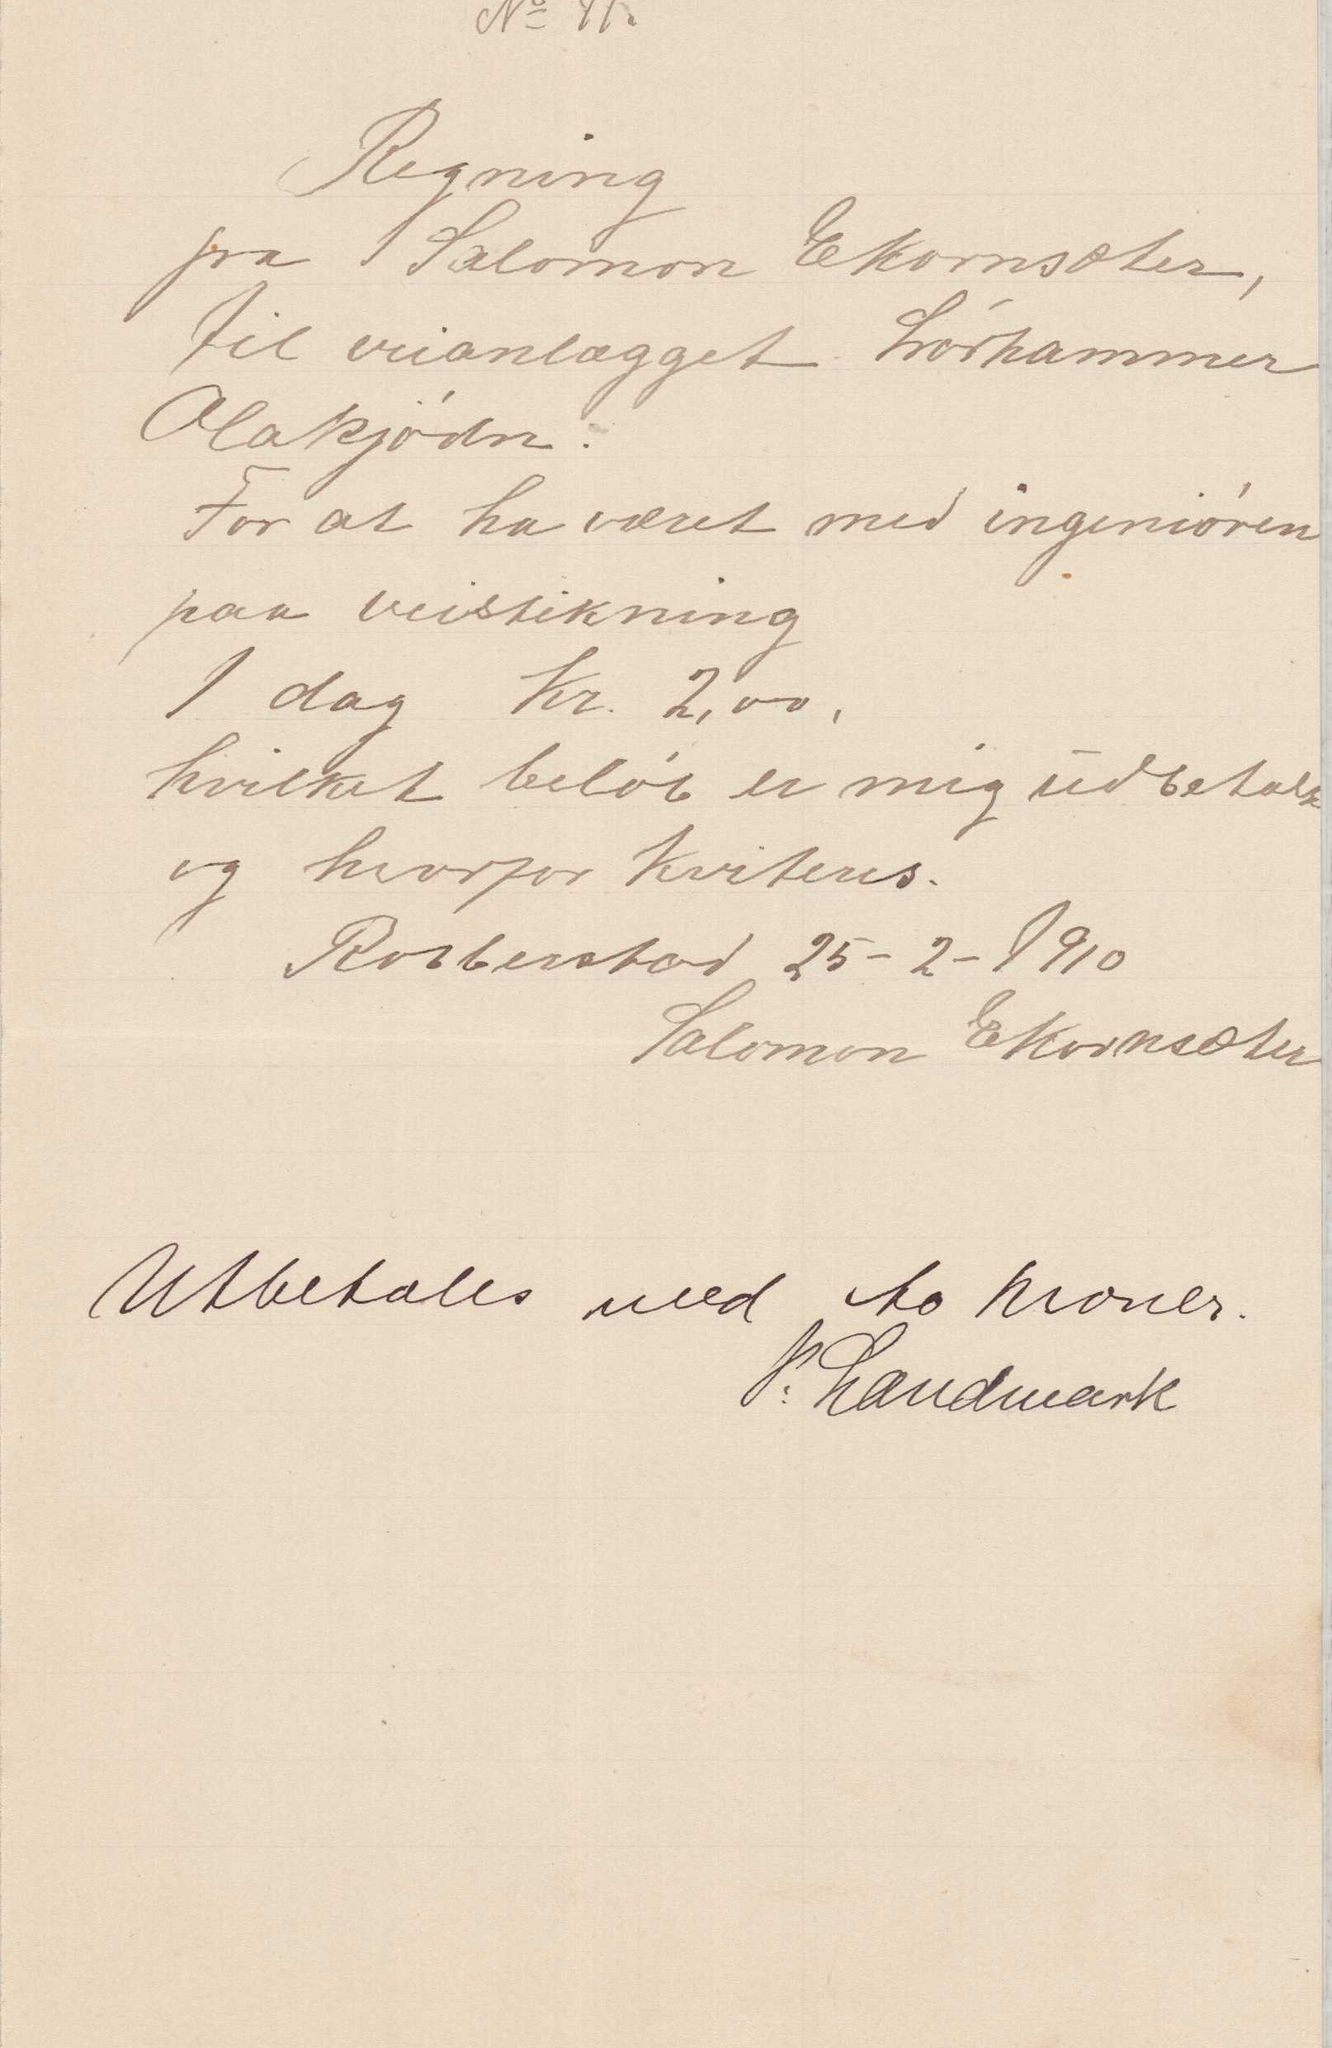 No 41.
Regning
fra Salomon Ekornsæter,
til veianlægget Lrørhammer
Olakjødn.
For at ha været med ingeniøren
paa veistikning
1 dag Kr. 2,00.
hvilket beløb er mig udbetalt
og hvorfor kviteres.
25-2-1910
Salomon Ekornsæter
Utbetales med to kroner.
P. Landmark